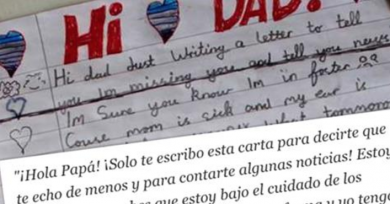 Hi DAD!
Hi dad Just Writing a letter to tell
you Im missing you and tell you news
Im Sure you Know Im in foster
Couse mom is sick and my ear is
"¡Hola Papá! ¡Solo te escribo esta carta para decirte que
te echo de menos y para contarte algunas noticias! Estoy
que estoy bajo el cuidado de los
y yo teng